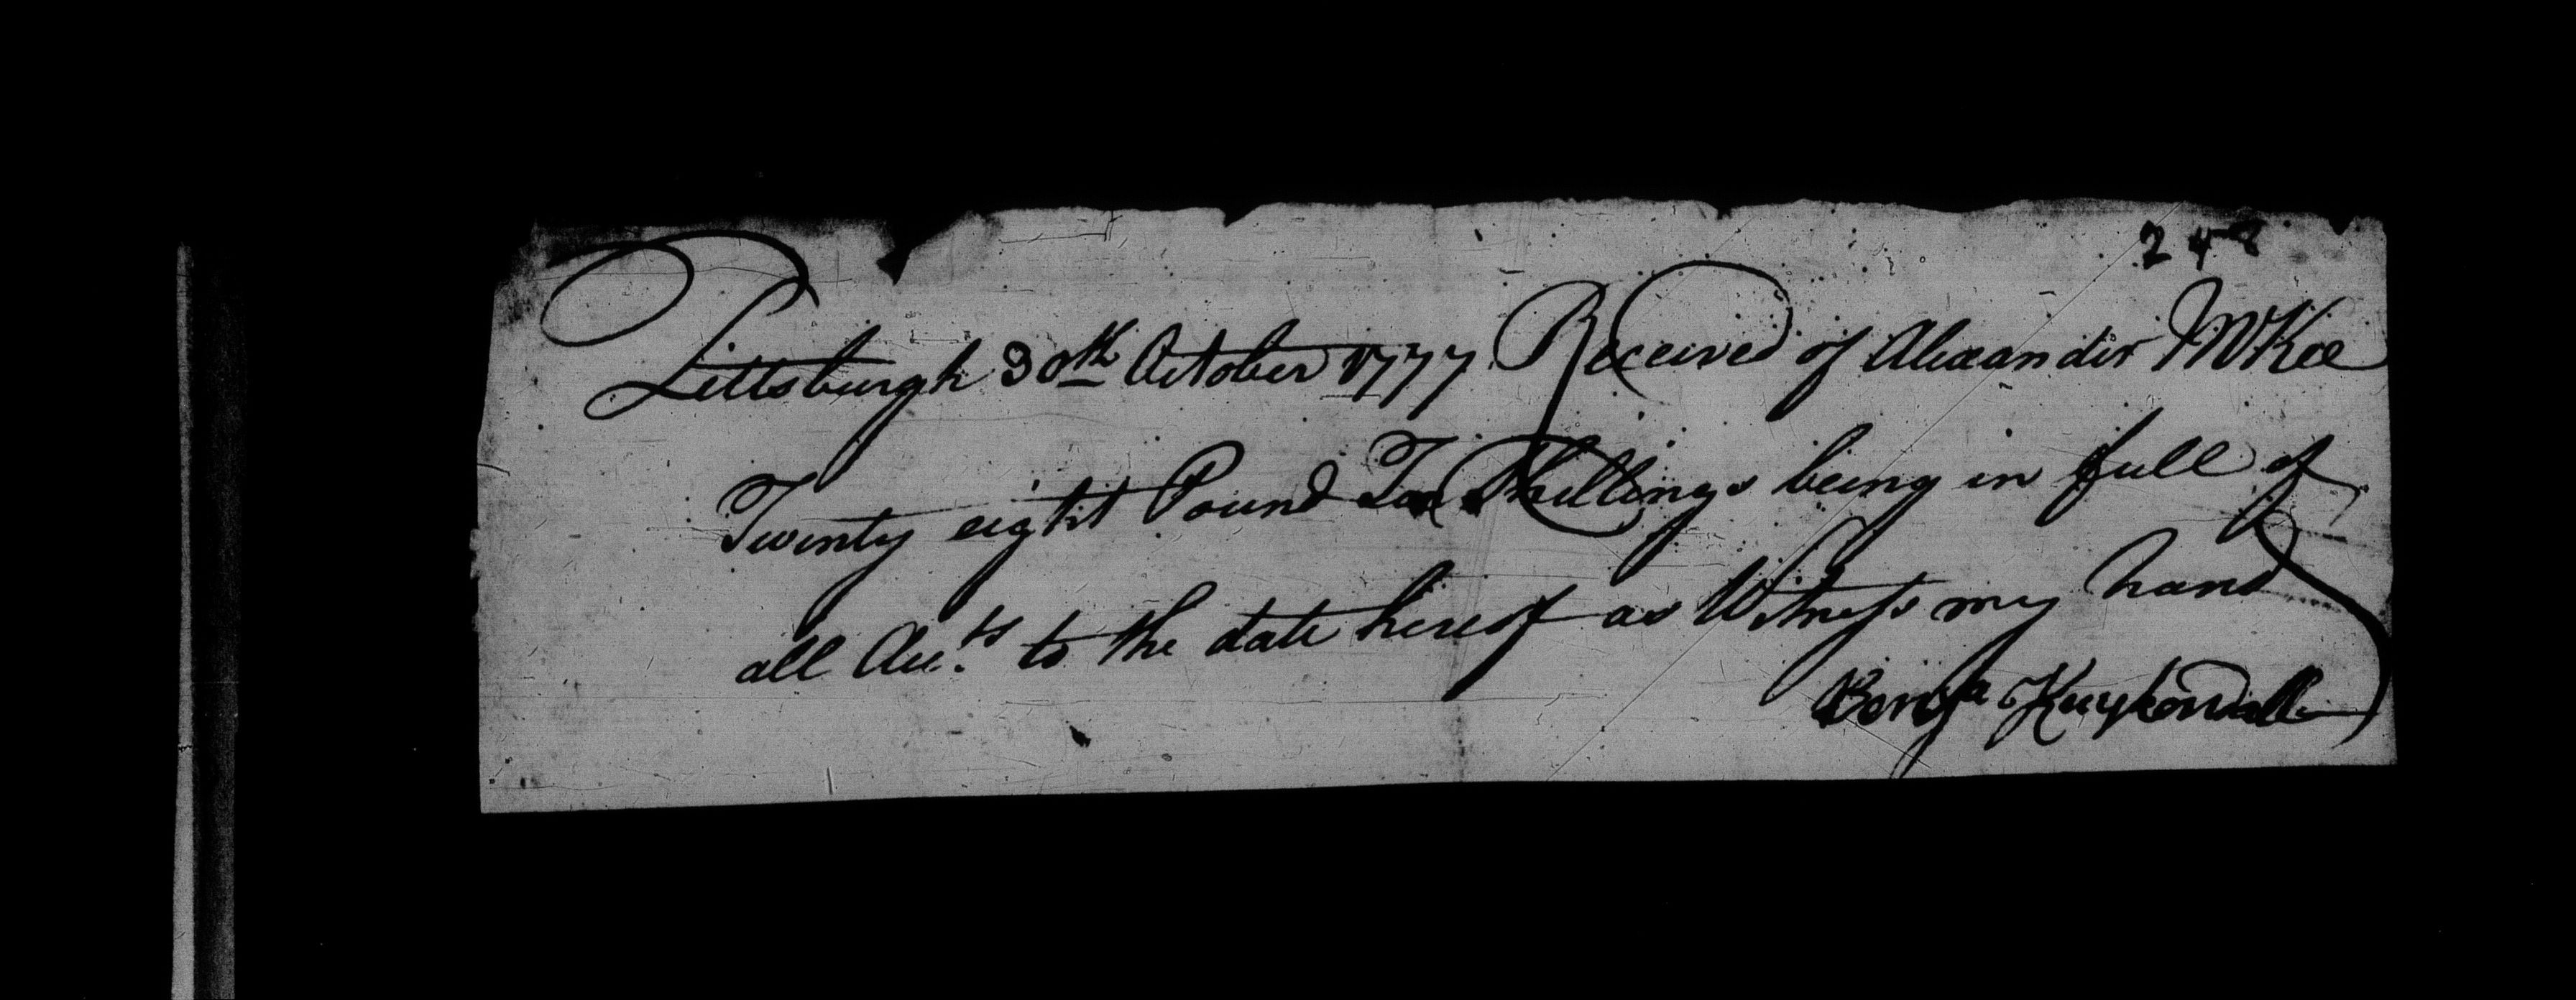 248
Pittsburgh 30th October 1777 Received of Alexander McKee
Twenty eight Pound Ten Shillings being in full of
all Acc.ts to the date hereof as Witness my hand
Benja Kuykendall